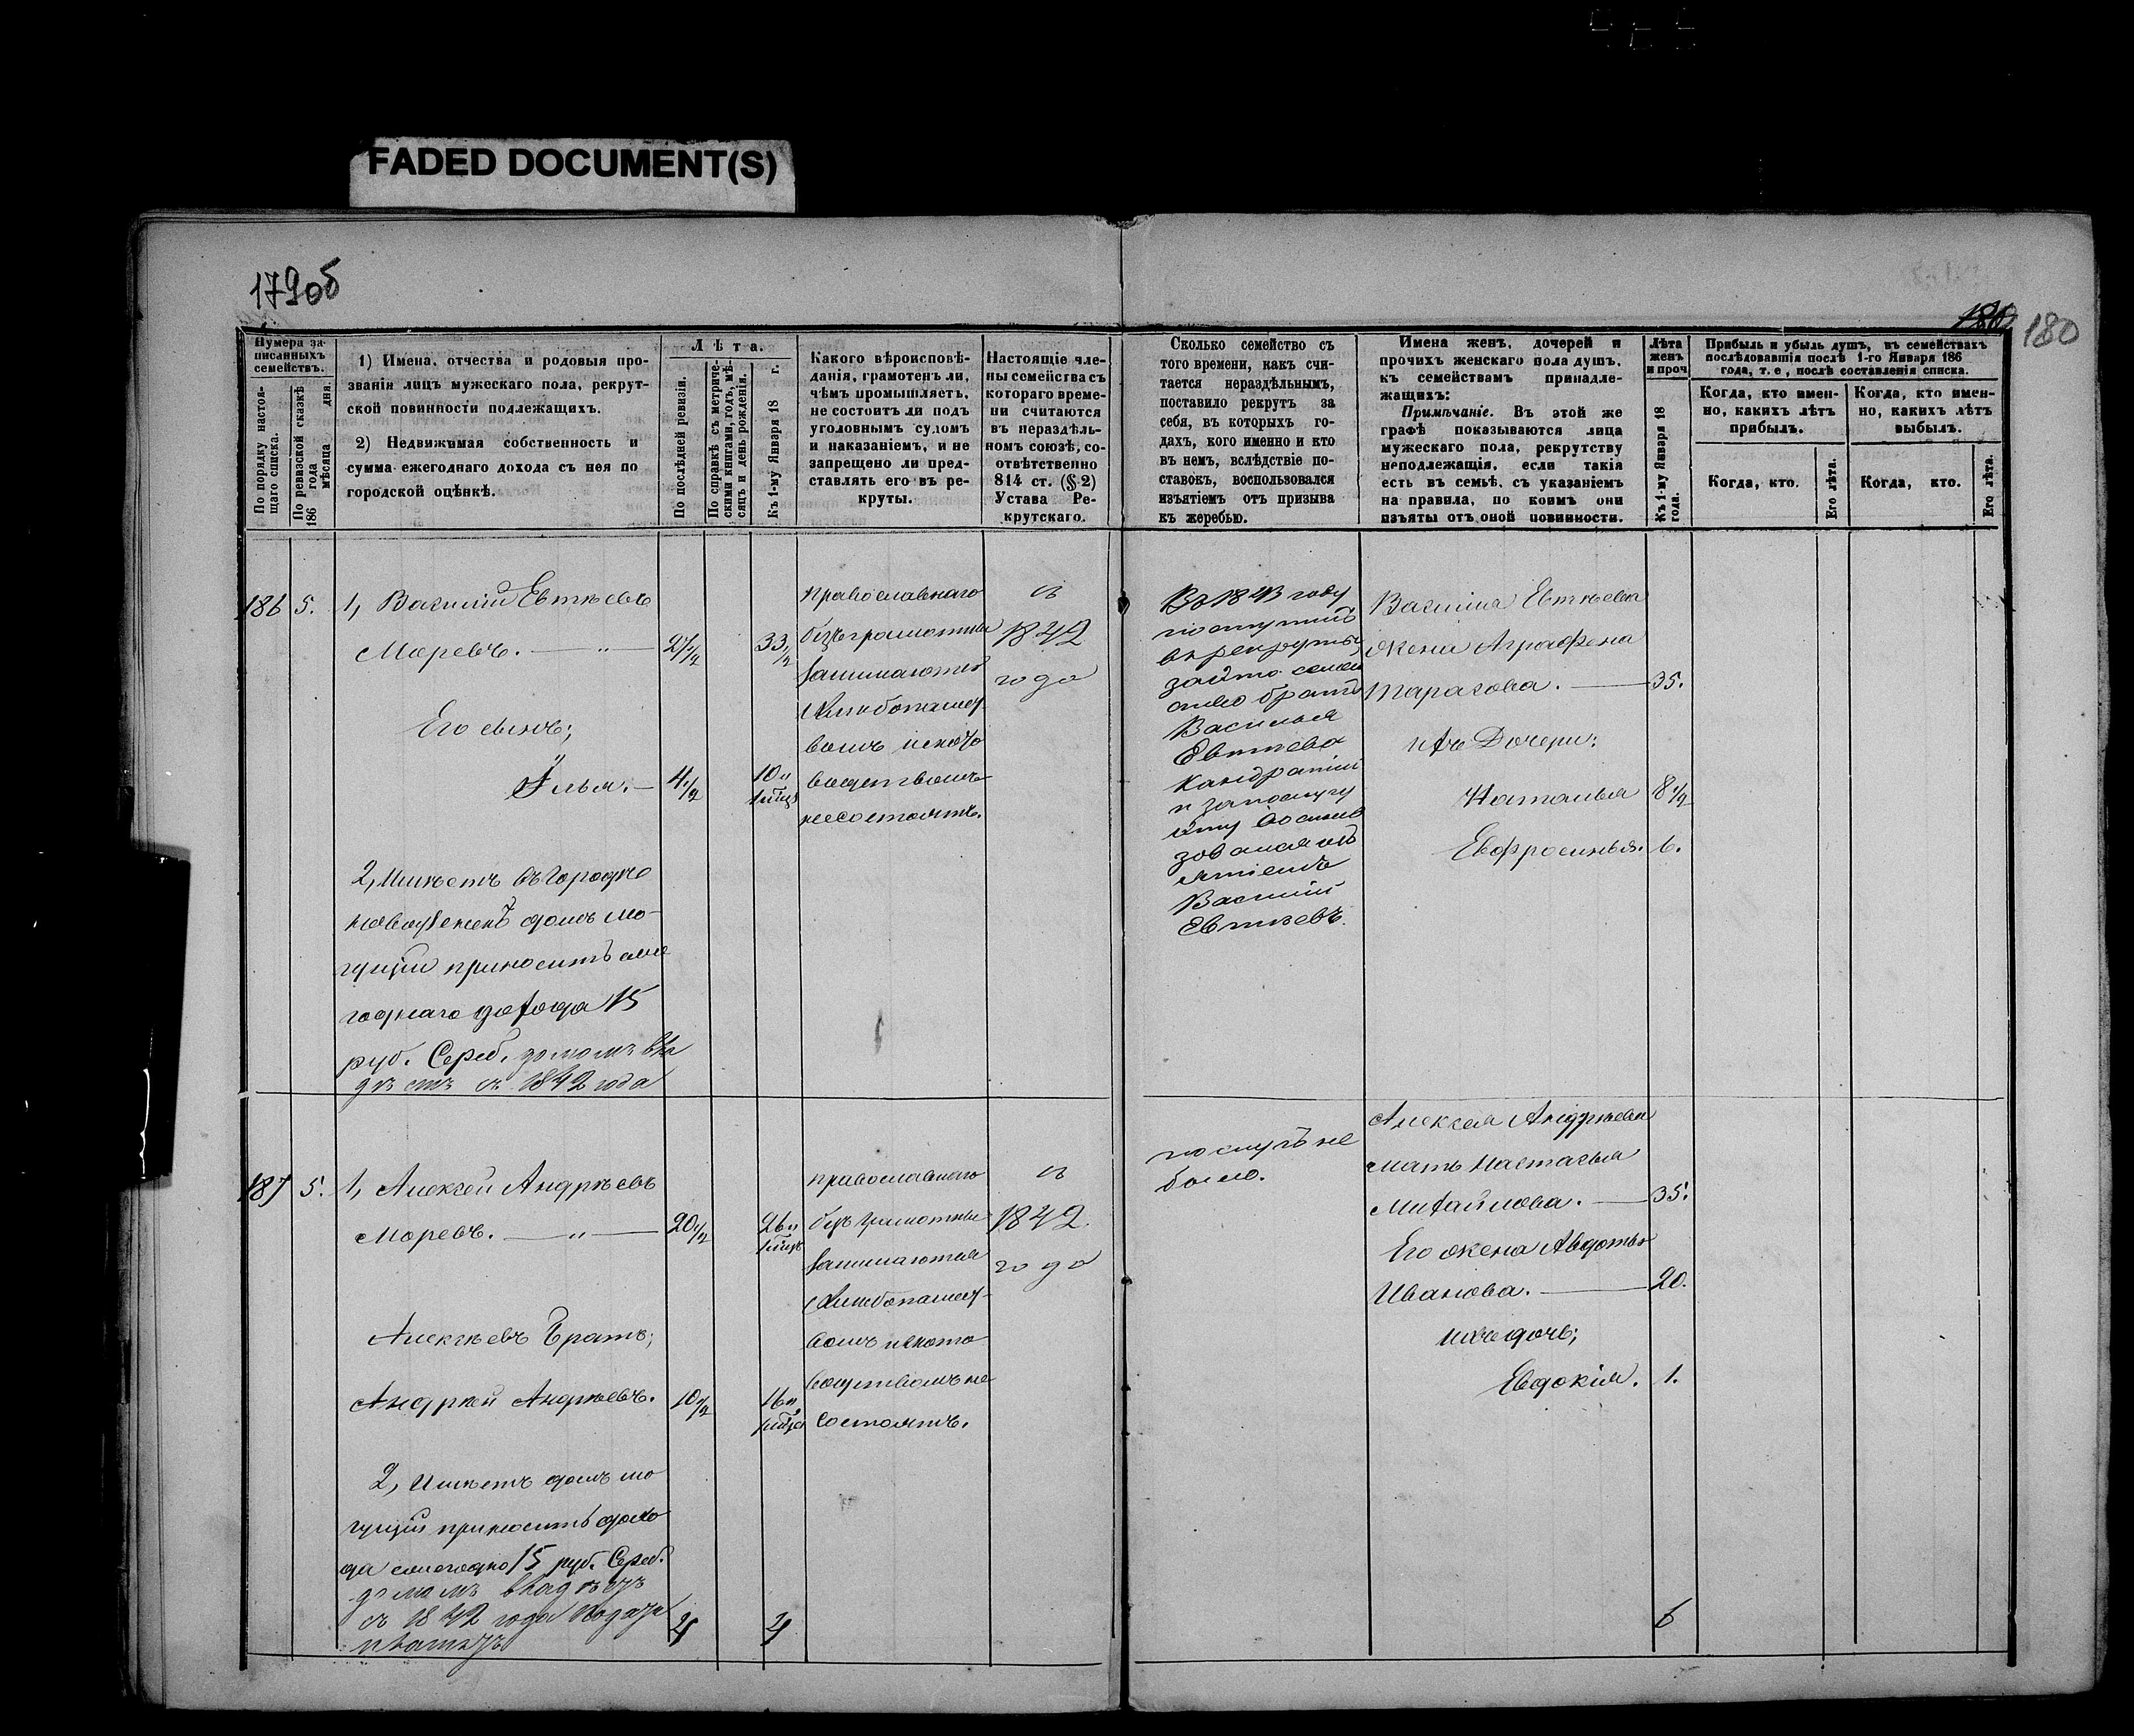 FADED DOCUMENT(S)
179об
180
180
Нумера записанныхъ семействъ.
По порядку настоящаго списка.
По ревизской сказкѣ 186 года мѣсяца дня.
1) Имена, отчества и родовыя прозванія лицъ мужескаго пола, рекрутской повинности подлежащихъ.
2) Недвижимая собственность и сумма ежегоднаго дохода съ нея по городской оцѣнкѣ.
Лѣта.
По послѣдней ревизіи.
По справкѣ съ метрическими книгами, годъ, мѣсяцъ и день рожденія.
Къ 1-му Января 18 г.
Какого вѣроисповѣданія, грамотенъ ли, чѣмъ промышляетъ, не состоитъ ли подъ уголовнымъ судомъ и наказаніемъ, и не запрещено ли представлять его въ рекруты.
Настоящіе члены семейства съ котораго времени считаются въ нераздѣльномъ союзѣ, соотвѣтственно 814 ст. (§ 2) Устава Рекрутскаго.
Сколько семейство съ того времени, какъ считается нераздѣльнымъ, поставило рекрутъ за себя, въ которыхъ годахъ, кого именно и кто въ немъ, вслѣдствіе поставокъ, воспользовался изъятіемъ отъ призыва къ жеребью.
Имена женъ, дочерей и прочихъ женскаго пола душъ, къ семействамъ принадлежащихъ:
Примѣчаніе. Въ этой же графѣ показываются лица мужескаго пола, рекрутству неподлежащія, если такія есть въ семьѣ, съ указаніемъ на правила, по коимъ они изъяты отъ оной повинности.
Лѣта женъ и проч.
Къ 1-му Января 18 года.
Прибыль и убыль душъ, въ семействахъ послѣдовавшія послѣ 1-го Января 186 года, т. е, послѣ составленія списка.
Когда, кто именно, какихъ лѣтъ прибылъ.
Когда, кто именно, какихъ лѣтъ выбылъ.
Когда, кто.
Его лѣта.
Когда, кто.
Его лѣта.
186 5. 1, Василій Евтѣевъ
Моревъ. — " — 27 1/2 33 1/2
Его сынъ;
Илья. — 4 1/2 10 и
2, Имѣетъ въ городѣ
домъ мо-
гущій приносить еже
годнаго дохода 15
руб. Сереб. домомъ вла
дѣетъ съ 1842 года
православнаго
безграмотны
занимаются
хлебопашест
вомъ и ското
водствомъ
несостоятъ.
съ
1842
года
Въ 1843 году
поступилъ
въ рекруты
за это семей
ство братъ
Василья
Евтѣева
Кандратій
и за послугу
эту восполь
зовался изъ
ятіемъ
Василій
Евтѣевъ.
Василія Евтѣева
жена Аграфена
Тарасова. — 35.
ихъ Дочери:
Наталья 8 1/2
Евфросинья. 6.
187 5. 1, Алексей Андрѣевъ
Моревъ. — " — 20 1/2 26 и
Алексѣевъ братъ;
Андрей Андрѣевъ. 10 1/2 16 и
2, Имѣетъ домъ мо
гущій приносить дохо
да ежегодно 15 руб. Сереб.
домомъ владѣетъ
съ 1842 года
4 4
православнаго
безграмотны
занимаются
хлебопашест-
вомъ и ското
водствомъ не
состоятъ.
съ
1842.
года
послугъ не
было.
Алексея Андрѣева
мать Настасья
Михайлова. — 35.
Его жена Авдотья
Иванова. — 20.
ихъ дочь;
Евдокія. 1.
6